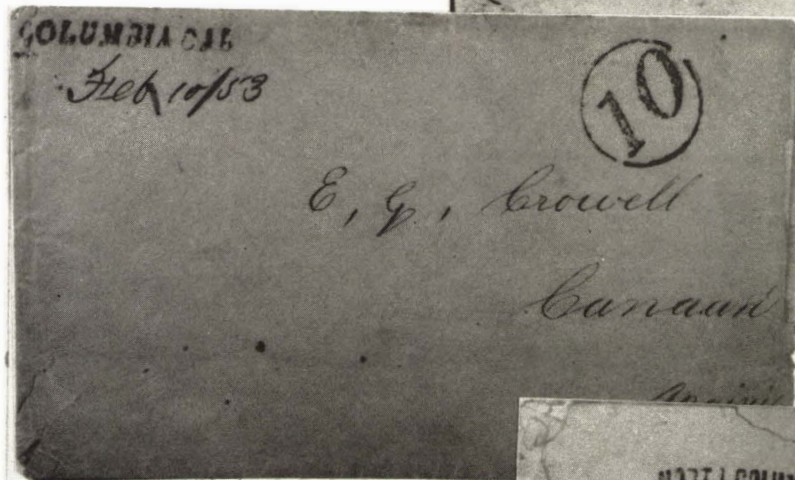 COLUMBIA CAL
Feb 10/53
10
E, G, Crowell
Canaan
Maine